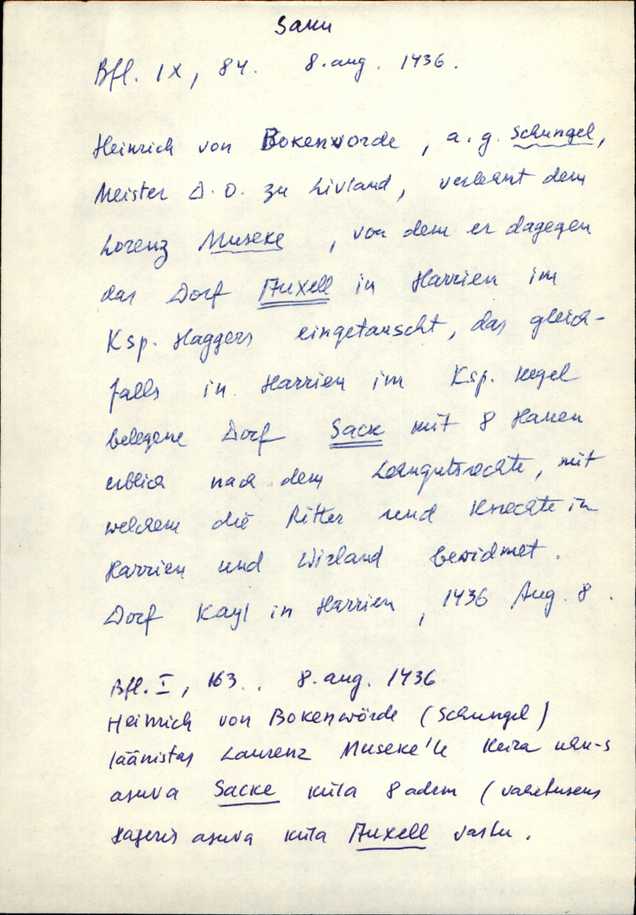 Saku
Bfl. IX, 84. 8. aug. 1436.
Heinrich von Bokenvorde, a. g. Schungel,
Meister D. O. zu Livland, verleant dem
Lorenz Museke, von dem er dagegen
das Dorf Auxell in Harrien im
Ksp. Haggers eingetauscht, das gleich-
falls in Harrien im Ksp. Kegel
belegene Dorf Sack mit 8 Haken
erblich nach dem Lehngutsrechte, mit
welchem die Ritter und Knechte in
Harrien und Wirland bewidmet.
Dorf Kayl in Harrien, 1436 Aug. 8.
Bfl. I, 163. 8. aug. 1436
Heinrich von Bokenwörde (Schungel)
läänistas Laurenz Museke'le Keila khk-s
asuva Sacke küla 8 adm (vahetusens
Hageris asuva küla Auxell vastu.